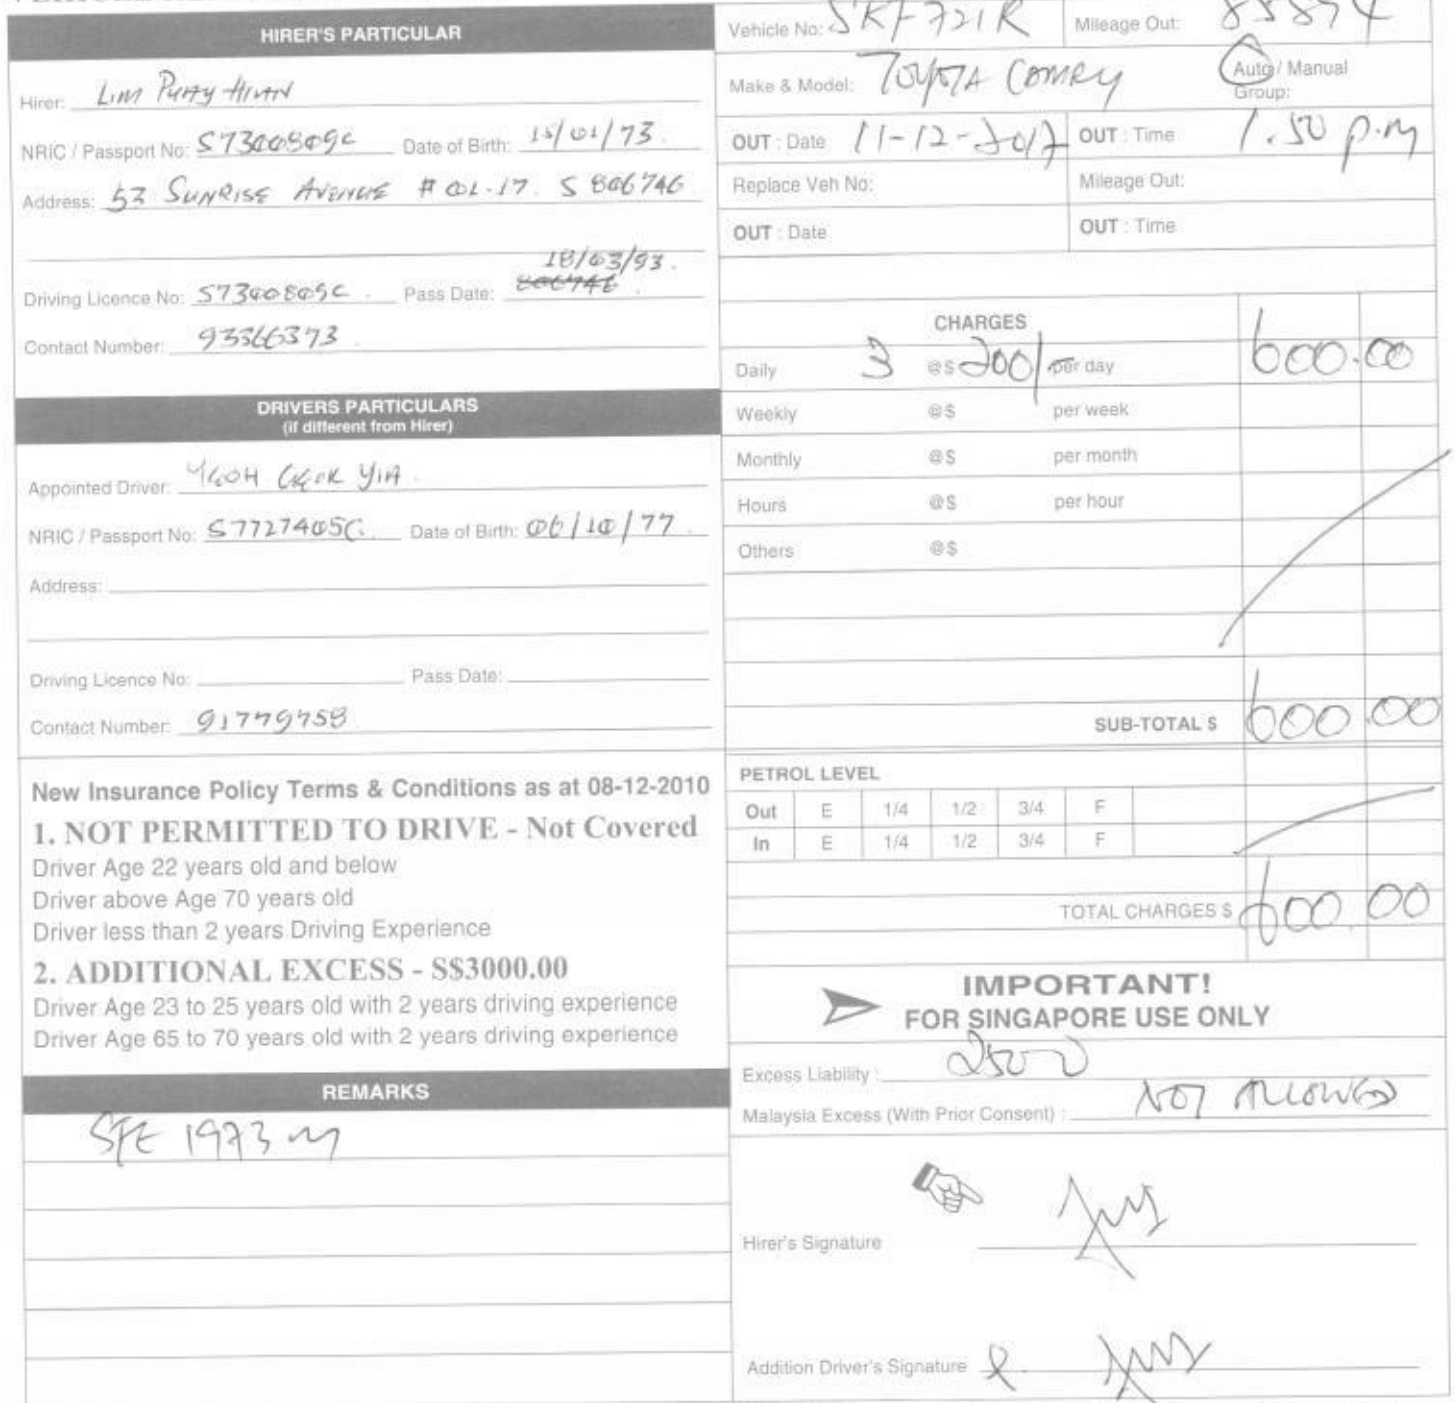 HIRER'S PARTICULAR
Hirer: Lim
NRIC / Passport No: S7300809C Date of Birth: 15/01/73.
Address: 53 SUNRISE AVENUE #01-17. S 806746
18/03/93.
Driving Licence No: S7300809C. Pass Date: 806746.
Contact Number: 93366373
DRIVERS PARTICULARS
(if different from Hirer)
Appointed Driver: YEOH GEOK YIA.
NRIC / Passport No: S7727405G. Date of Birth: 06/10/77.
Address:
Driving Licence No: Pass Date:
Contact Number: 91779758
New Insurance Policy Terms & Conditions as at 08-12-2010
1. NOT PERMITTED TO DRIVE - Not Covered
Driver Age 22 years old and below
Driver above Age 70 years old
Driver less than 2 years Driving Experience
2. ADDITIONAL EXCESS - S$3000.00
Driver Age 23 to 25 years old with 2 years driving experience
Driver Age 65 to 70 years old with 2 years driving experience
REMARKS
SFE 1973 M
Vehicle No: SKF 721R Mileage Out: 85894
Make & Model: TOYOTA COMRY Auto / Manual
Group:
OUT : Date 11-12-2017 OUT : Time 1.50 p.m
Replace Veh No: Mileage Out:
OUT : Date OUT : Time
CHARGES
Daily 3 @$ 200/- per day 600.00
Weekly @$ per week
Monthly @$ per month
Hours @$ per hour
Others @$
SUB-TOTAL $ 600.00
PETROL LEVEL
Out E 1/4 1/2 3/4 F
In E 1/4 1/2 3/4 F
TOTAL CHARGES $ 600.00
IMPORTANT!
FOR SINGAPORE USE ONLY
Excess Liability : 2500
Malaysia Excess (With Prior Consent) : NOT ALLOWED
Hirer's Signature
Addition Driver's Signature